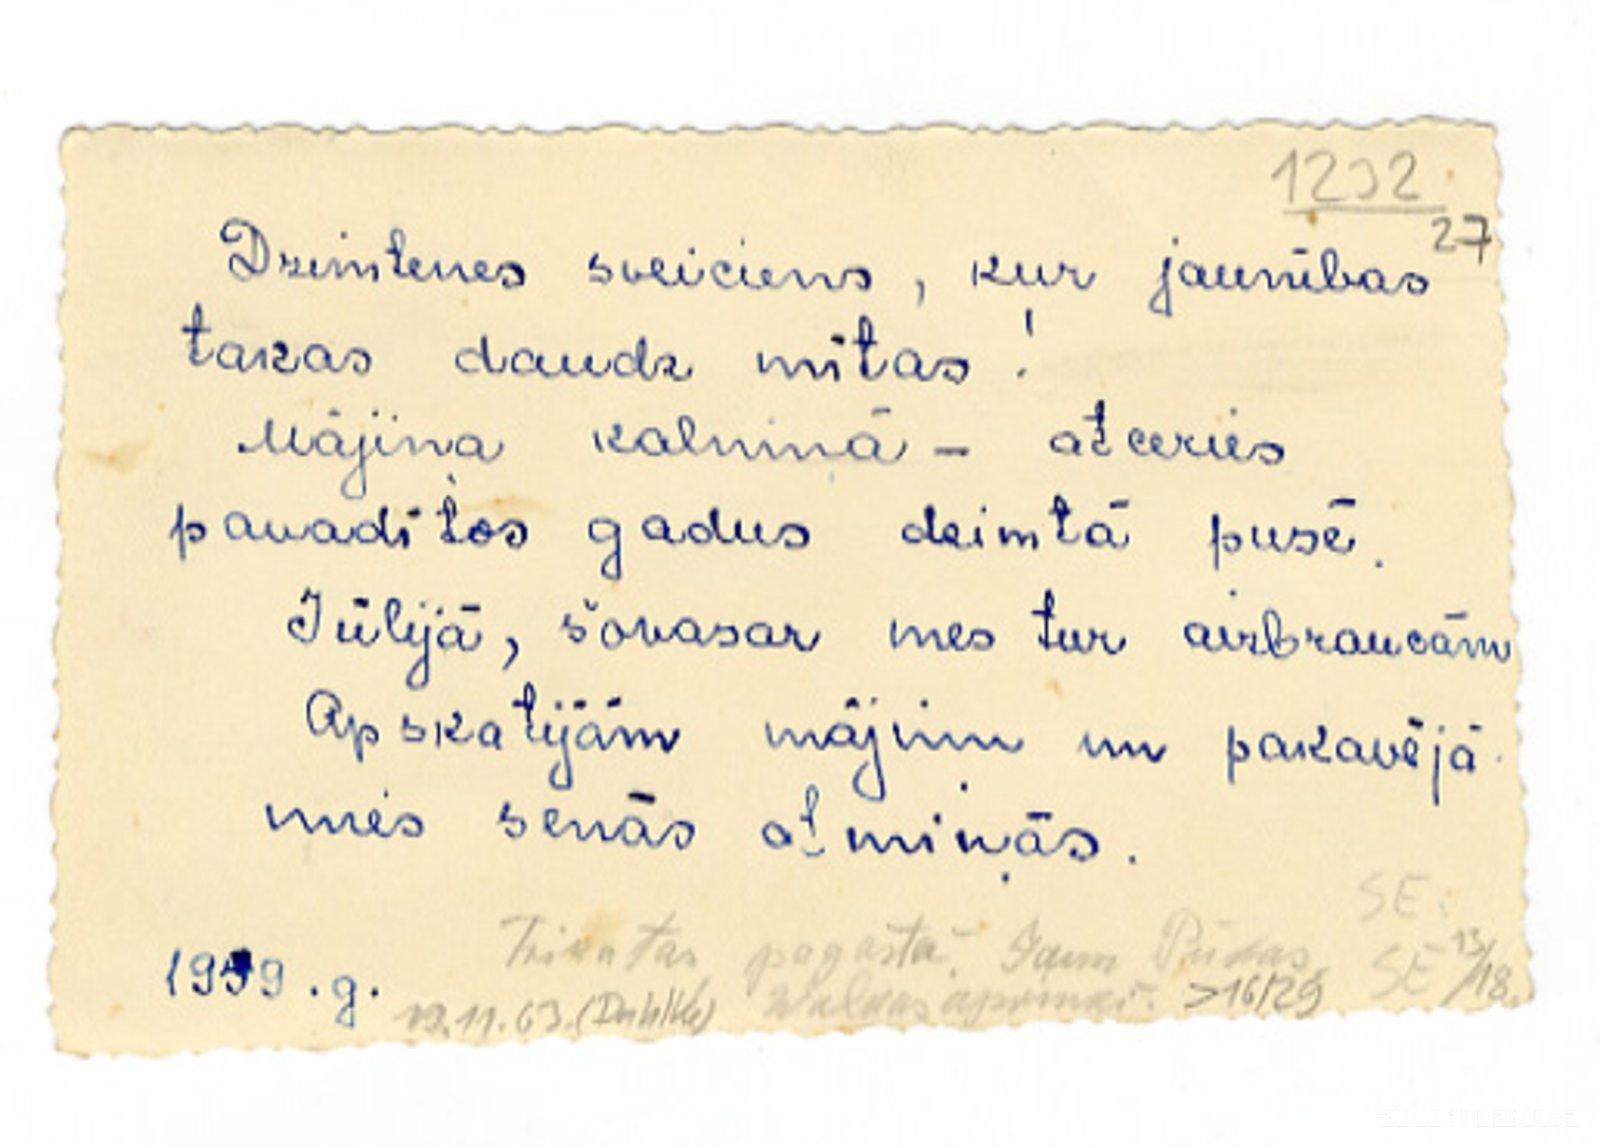 1232
27
Dzimtenes sveiciens, kur jaunības
takas daudz mītas!
Mājiņa kalniņā – atceries
pavadītos gadus dzimtā pusē.
Jūlijā, šovasar mes tur aizbraucām
Apskatījām mājiņu un pakavējā-
mies senās atmiņās.
SE.
Trikatas pagastā. Jaun Pūdas
SE 13/18.
1959.g.
19.11.63. (Dahlke) Walkas apriņķī. >16/29